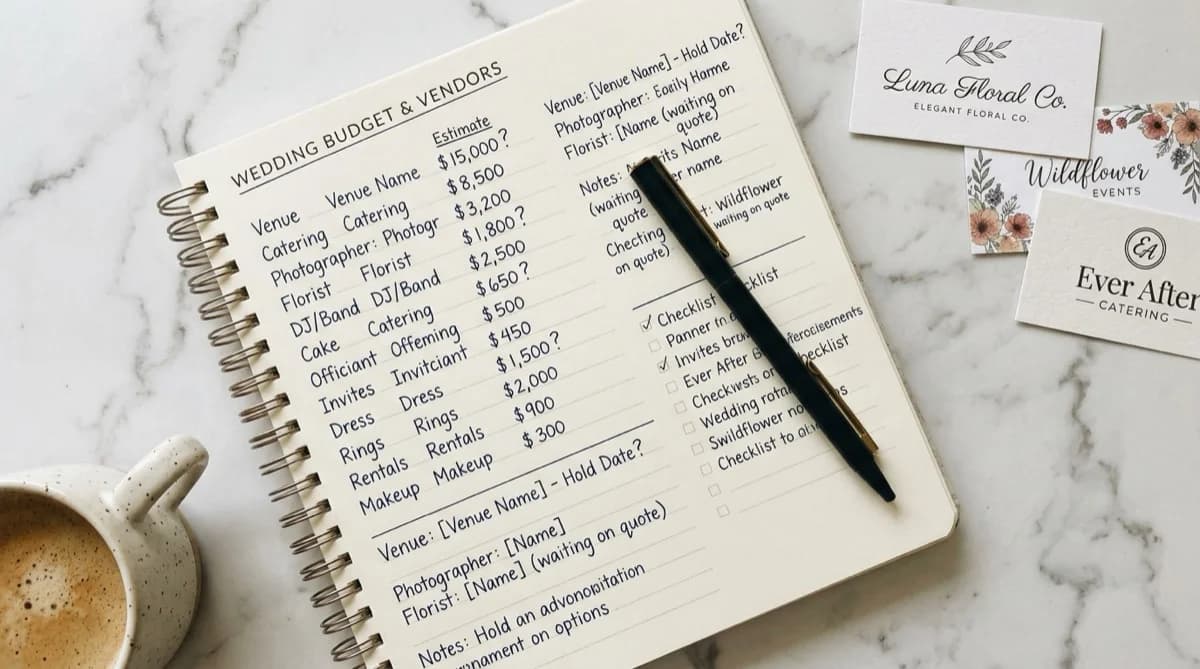 WEDDING BUDGET & VENDORS
Estimate
Venue Venue Name $15,000?
Catering Catering $8,500
Photographer: Photogr $3,200
Florist Florist $1,800?
DJ/Band DJ/Band $2,500
Cake Catering $650?
Officiant Offeming $500
Invites Invitciant $450
Dress Dress $1,500?
Rings Rings $2,000
Rentals Rentals $900
Makeup Makeup $300
Venue: [Venue Name] - Hold Date?
Photographer: [Name]
Florist: [Name] (waiting on quote)
Notes: Hold an
on options
Venue: [Venue Name] - Hold Date?
Photographer: Harme
Florist: [Name (waiting on
quote)
Notes: Name
(waiting name
quote Wildflower
Checting waiting on quote
on quote)
Checklist
Panner
Invites
Ever After
or
Wedding
Swildflower
Checklist to
Luna Floral Co.
ELEGANT FLORAL CO.
Wildflower
EVENTS
EA
Ever After
CATERING